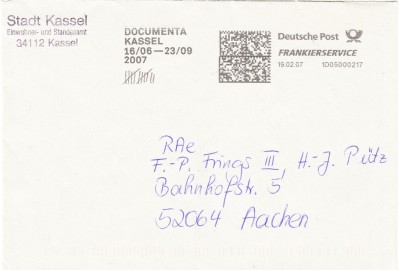 Stadt Kassel
Einwohner- und Standesamt
34112 Kassel
DOCUMENTA
KASSEL
16/06 — 23/09
2007
Deutsche Post
FRANKIERSERVICE
19.02.07 1D05000217
RAe
F.-P. Frings III, H.-J. Pütz
Bahnhofstr. 5
52064 Aachen